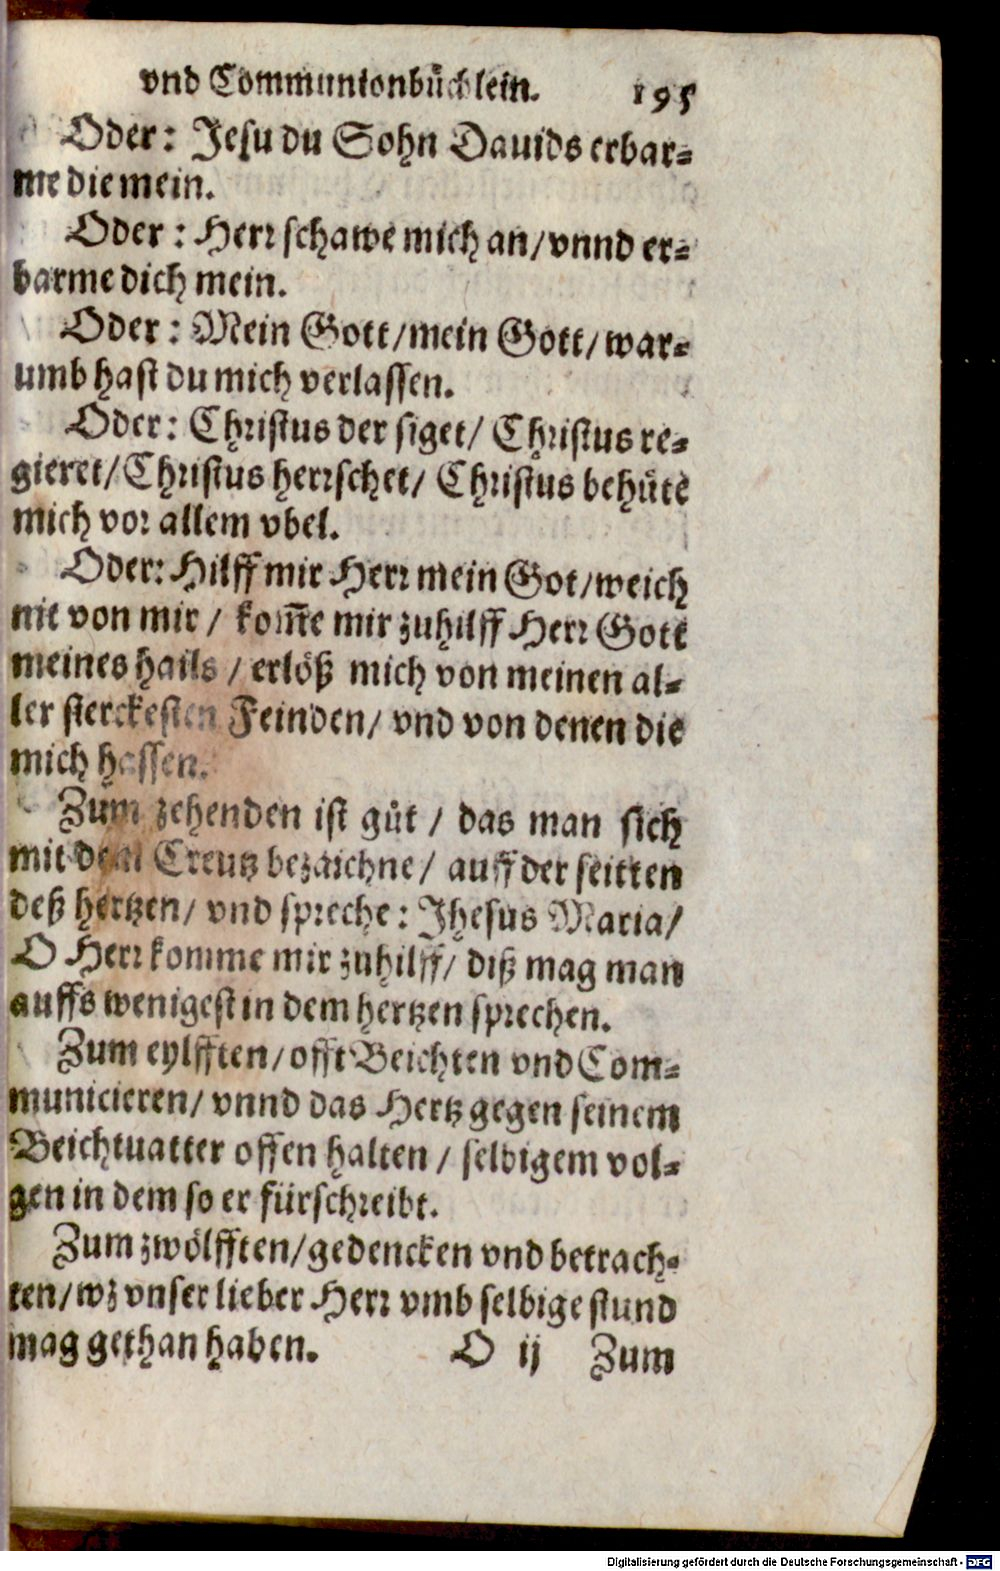 vnd Communionbüchlein. 195
Oder: Jesu du Sohn Dauids erbar-
me die mein.
Oder: Herr schawe mich an/vnnd er-
barme dich mein.
Oder: Mein Gott/mein Gott/war-
umb hast du mich verlassen.
Oder: Christus der siget/ Christus re-
gieret/Christus herrschet/ Christus behüte
mich vor allem vbel.
Oder: Hilff mir Herr mein Got/weich
nit von mir/ kom̅e mir zuhilff Herr Gott
meines hails/ erlöß mich von meinen al-
ler sterckesten Feinden/ vnd von denen die
mich hassen.
Zum zehenden ist gůt/ das man sich
mit dem Creutz bezaichne/ auff der seitten
deß hertzen/ vnd spreche: Jhesus Maria/
O Herr komme mir zuhilff/ diß mag man
auffs wenigest in dem hertzen sprechen.
Zum eylfften/offt Beichten vnd Com-
municieren/ vnnd das Hertz gegen seinem
Beichtuatter offen halten/ selbigem vol-
gen in dem so er fürschreibt.
Zum zwölfften/gedencken vnd betrach-
ten/wz vnser lieber Herr vmb selbige stund
mag gethan haben. O ij Zum
Digitalisierung gefördert durch die Deutsche Forschungsgemeinschaft - DFG